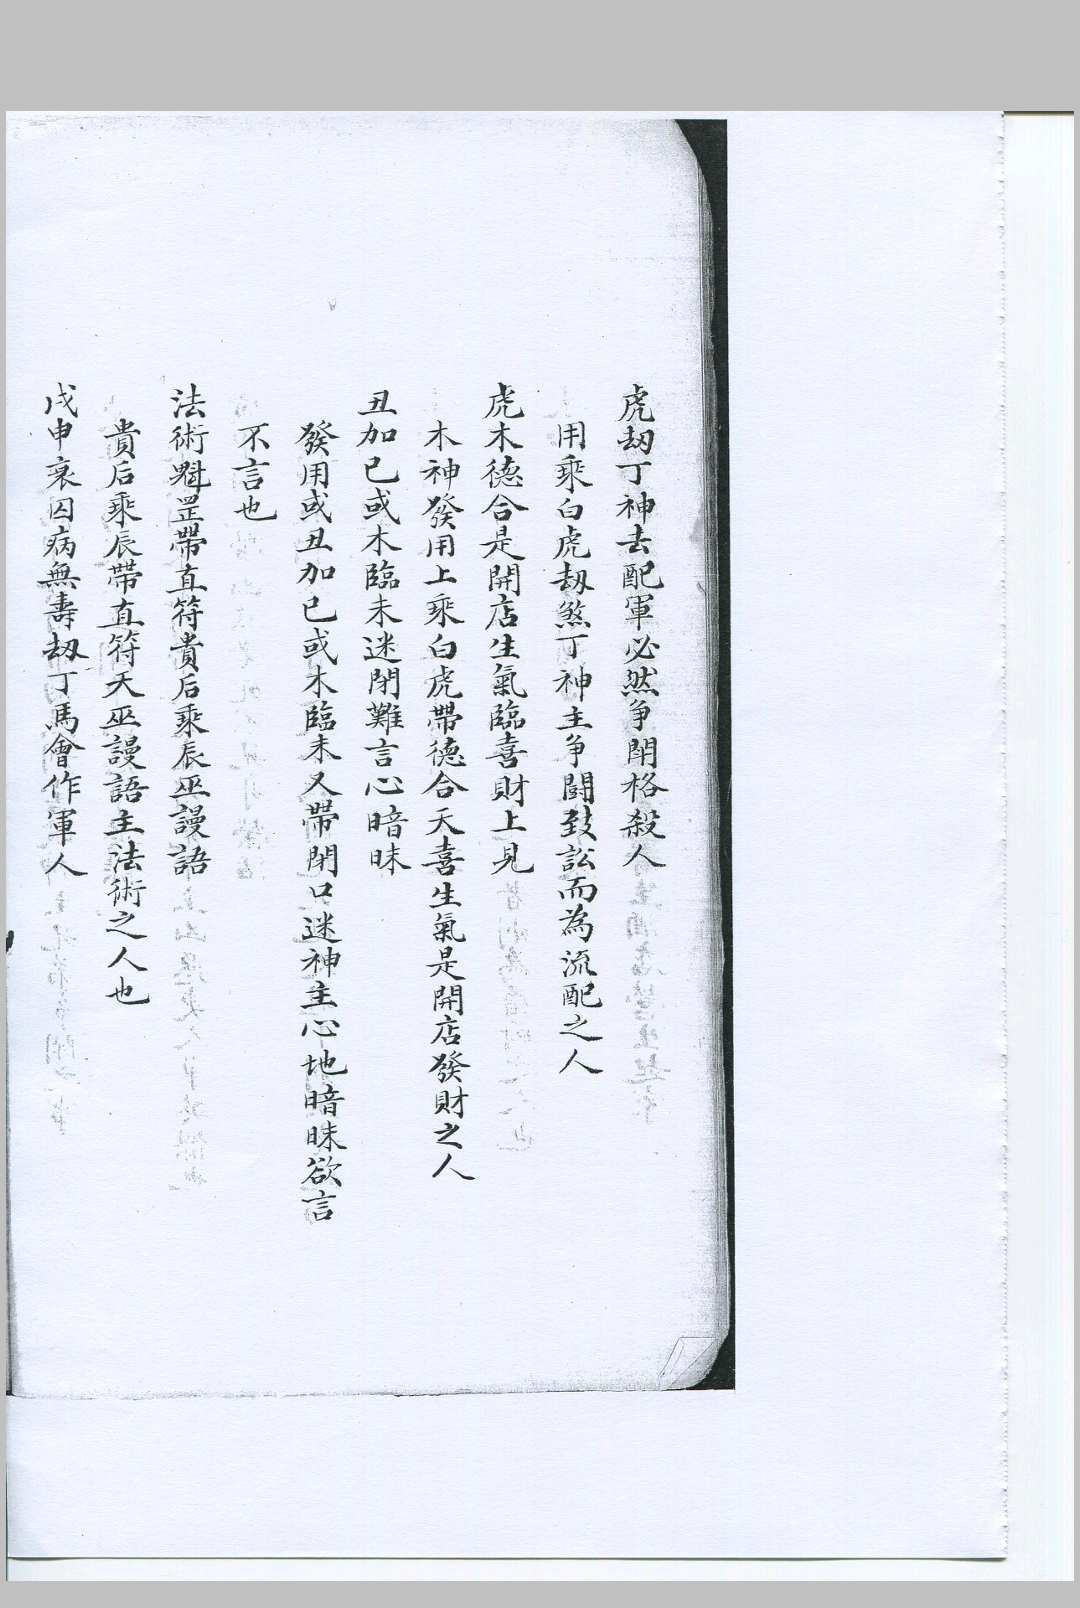 虎刼丁神去配軍必然争閗格殺人
用乘白虎刼煞丁神主争鬪致訟而為流配之人
虎木德合是開店生氣臨喜財上見
木神發用上乘白虎帶德合天喜生氣是開店發財之人
丑加巳或木臨未迷閉難言心暗昧
發用或丑加巳或木臨未又帶閉口迷神主心地暗昧欲言
不言也
法術魁罡帶直符貴后乘辰巫謾語
貴后乘辰帶直符天巫謾語主法術之人也
戌申衰囚病無壽刼丁馬會作軍人